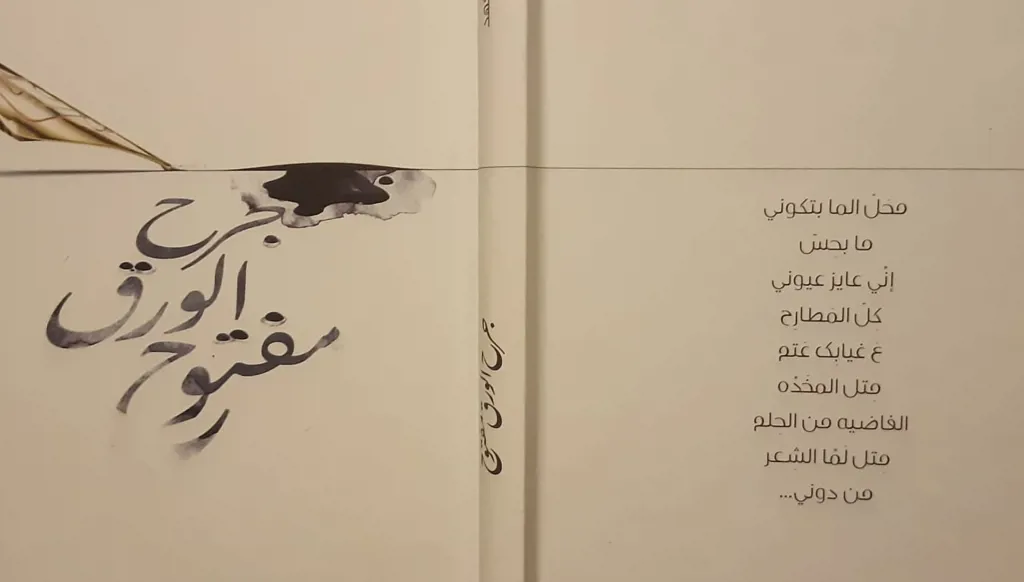 جرح
الورق
مفتوح
جرح الورق مفتوح
محَلّ الما بتكوني
ما بحِسّ
إنّي عايز عيوني
كِلّ المَطارِح
عَ غيابك عَتم
مِتل المخَدّه
الفاضيه من الحِلم
مِتل لَمّا الشِعر
من دوني...